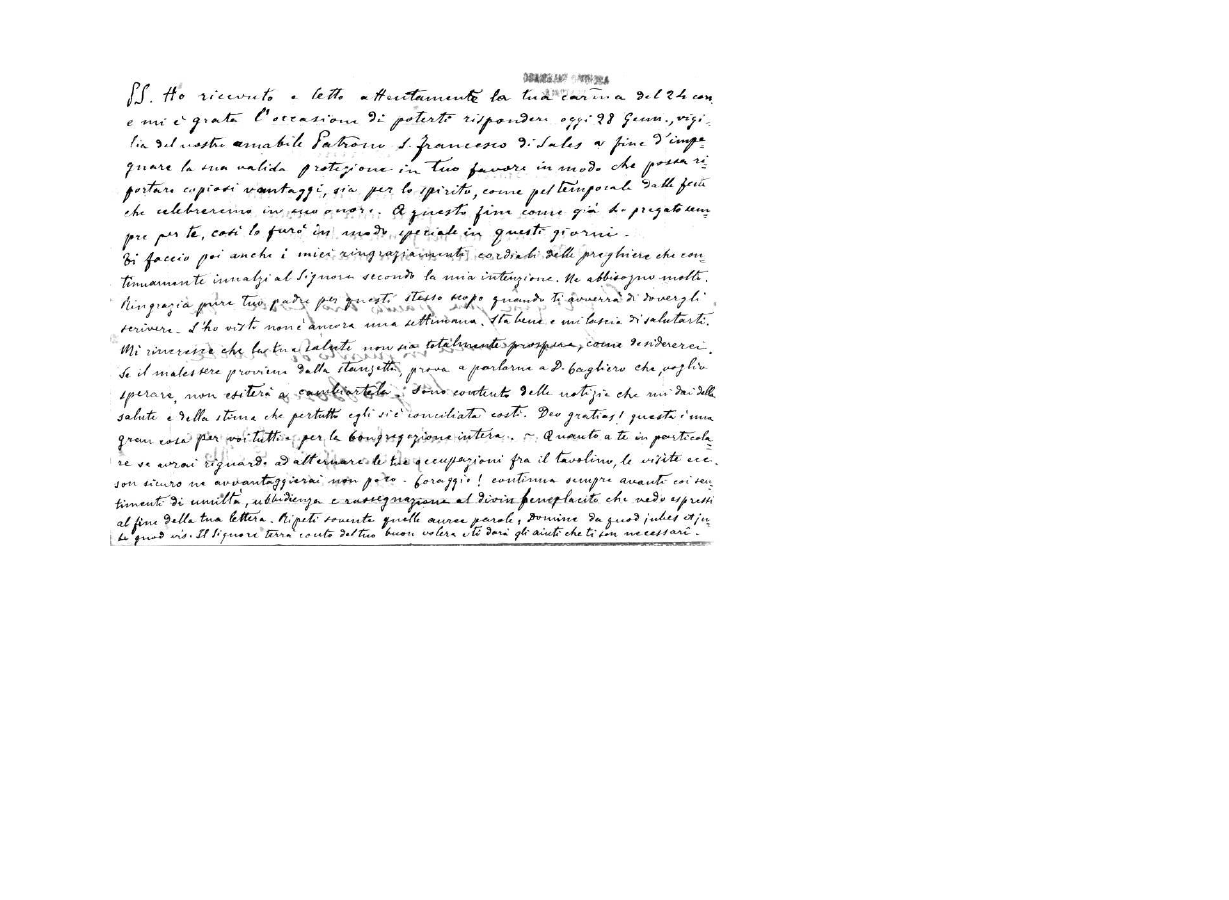 PS. Ho ricevuto e letto attentamente la tua carina del 24 con.
e mi è grata l'occasione di poterti rispondere oggi 28 Genn., vigi-
lia del nostro amabile Patrono S. Francesco di Sales a fine d'impe-
gnare la sua valida protezione in tuo favore in modo che possa ri-
portare copiosi vantaggi, sia per lo spirito, come pel temporale dalle feste
che celebreremo in suo onore. A questo fine come già ho pregato sem-
pre per te, così lo farò in modo speciale in questi giorni.
Ti faccio poi anche i miei ringraziamenti cordiali delle preghiere che con-
tinuamente innalzi al Signore secondo la mia intenzione. Ne abbisogno molto.
Ringrazia pure tuo padre per questo stesso scopo quando ti avverrà di dovergli
scrivere. L'ho visto non è ancora una settimana. Sta bene e mi lascia di salutarti.
Mi rincresce che la tua salute non sia totalmente prospera, come desidererei.
Se il malessere proviene dalla stanzetta, prova a parlarne a D. Cagliero che, voglio
sperare, non esiterà a cambiartela. Sono contento delle notizie che mi dai della
salute e della stima che pertutto egli si è conciliata costì. Deo gratias! questa è una
gran cosa per voi tutti e per la Congregazione intera. – Quanto a te in particola-
re se avrai riguardo ad alternare le tue occupazioni fra il tavolino, le visite ecc.
son sicuro ne avvantaggierai non poco. Coraggio! continua sempre avanti coi sen-
timenti di umiltà, ubbidienza e rassegnazione al divin beneplacito che vedo espressi
al fine della tua lettera. Ripeti sovente quelle auree parole, Domine da quod jubes et ju-
be quod vis. Il Signore terrà conto del tuo buon volere e ti darà gli aiuti che ti son necessarî.